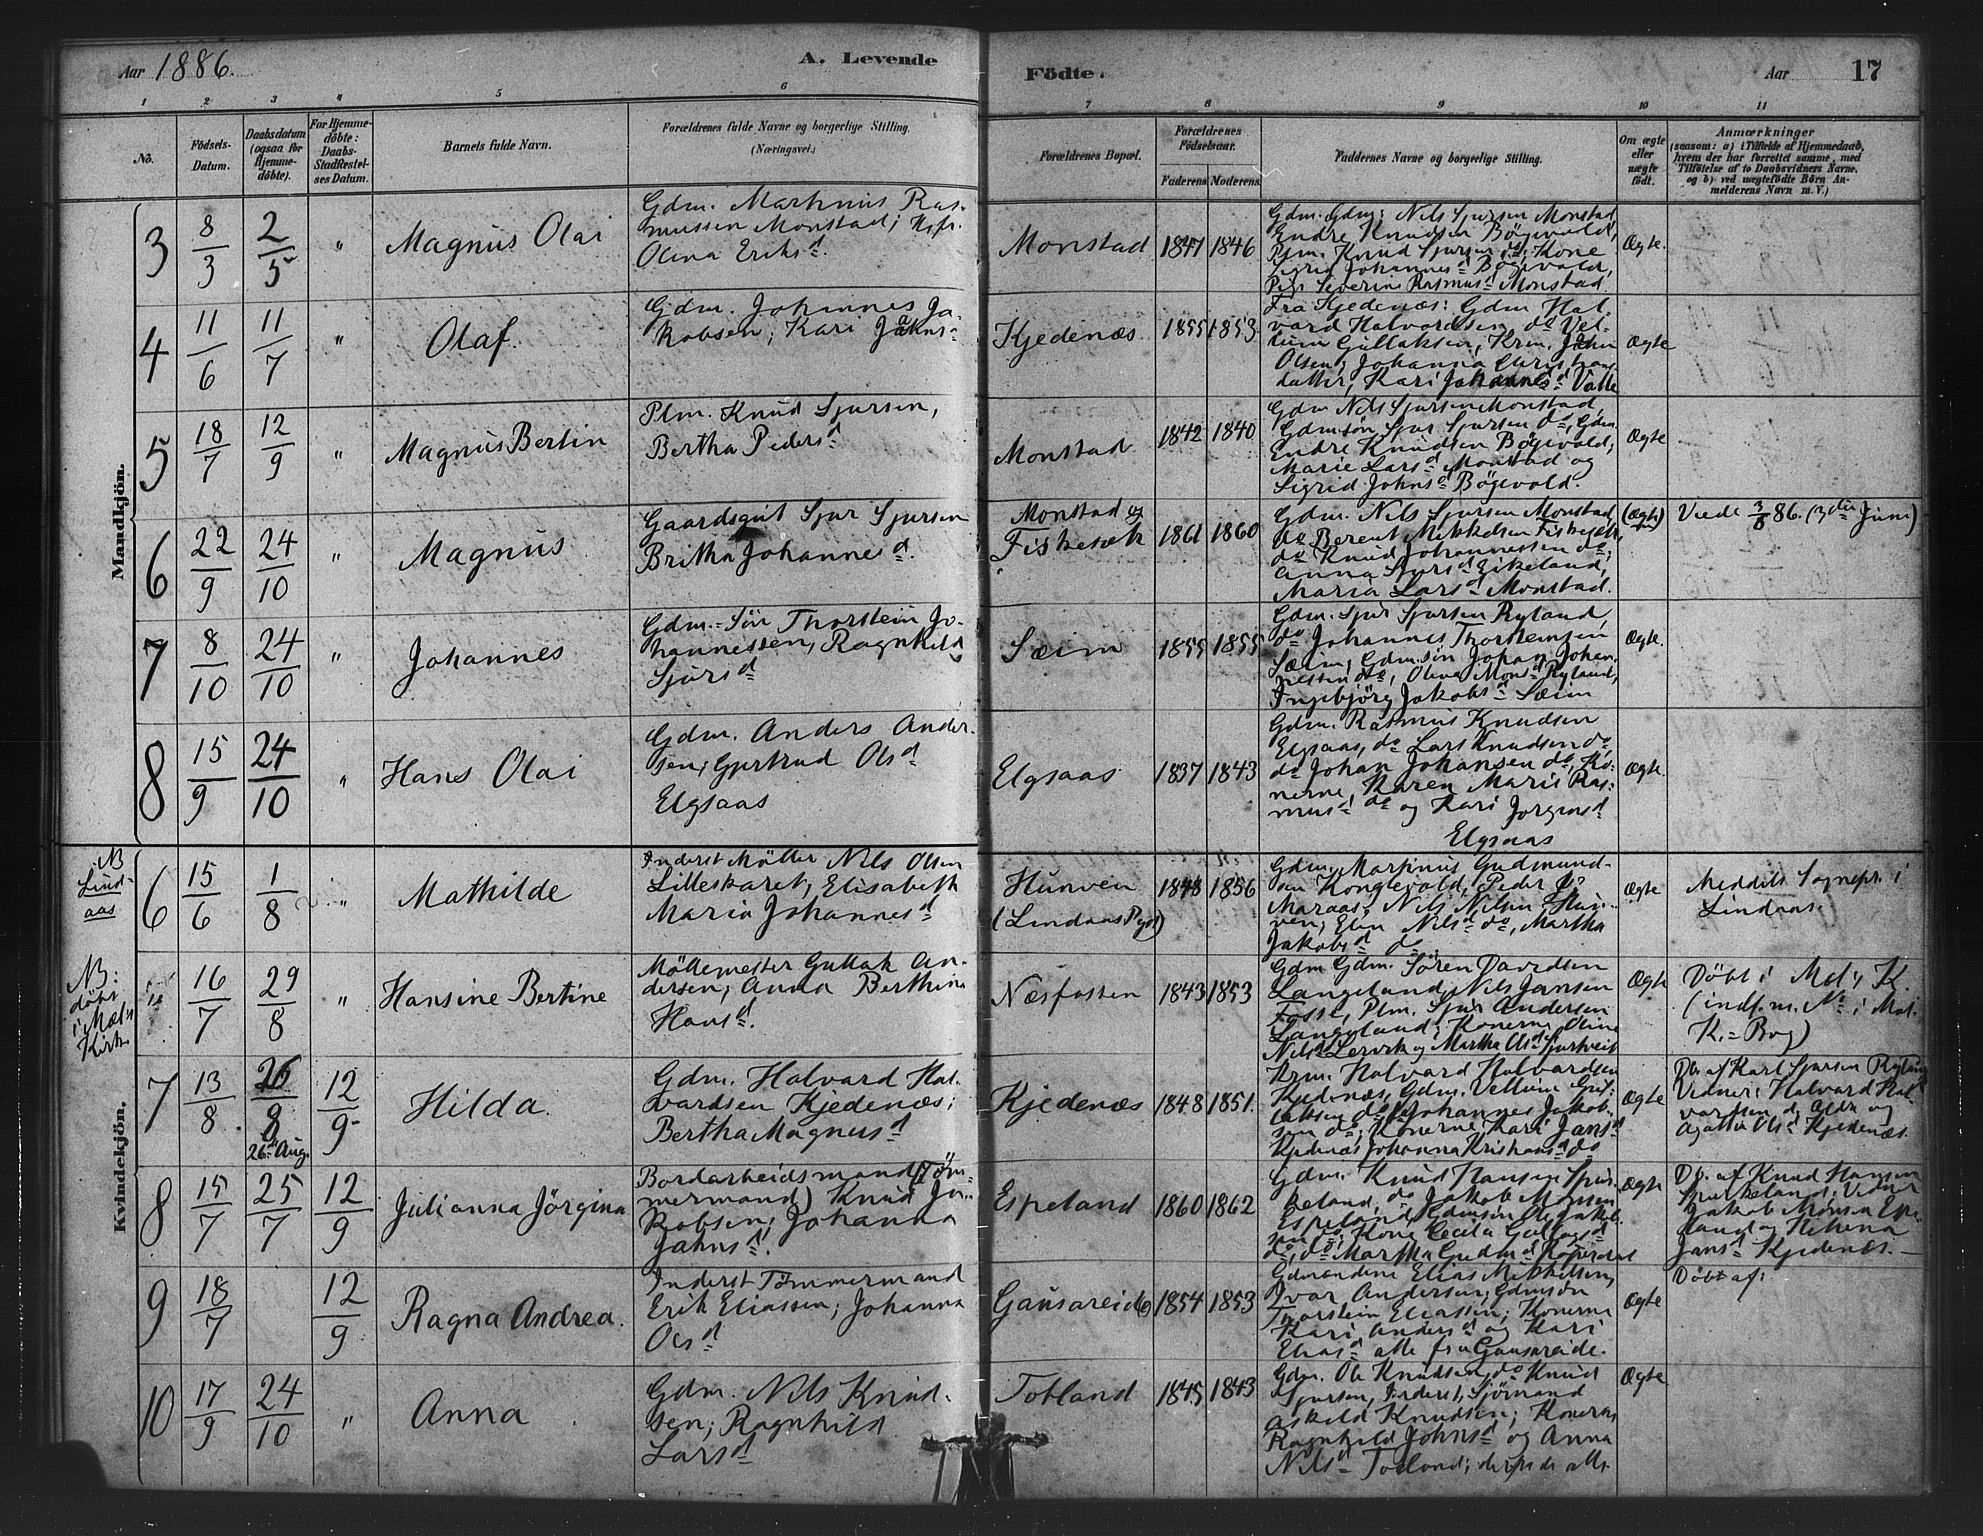 Aar 1886.
A. Levende
Födte.
Aar
17
1 2 3 4 5 6 7 8 9 10 11
No.
Födsels-
Datum.
Daabsdatum
(ogsaa for
Hjemme-
döbte).
For Hjemme-
döbte:
Daabs-
Stadfæstel-
ses Datum.
Barnets fulde Navn.
Forældrenes fulde Navne og borgerlige Stilling.
(Næringsvei.)
Forældrenes Bopæl.
Forældrenes
Födselsaar.
Faderens Moderens
Faddernes Navne og borgerlige Stilling.
Om ægte
eller
uægte
födt.
Anmærkninger
(saasom: a) i Tilfælde af Hjemmedaab,
hvem der har forrettet samme, med
Tilföielse af to Daabsvidners Navne.
og b) ved uægtefödte Börn An-
melderens Navn m. V.)
Mandkjön.
3
8/3
2/5
"
Magnus Olai
Gdm. Martinus Ras-
mussen Monstad;
Olina Eriksd
Monstad
1847 1846
Gdm. Gdm: Nils Sjursen Monstad
Endre Knudsen Bögevold,
Plm. Knud Sjursen do; Kone
Sigrid Johannesd Bögevold,
Pige Severine Rasmusd Monstad.
Ægte.
4
11/6
11/7
"
Olaf.
Gdm. Johannes Ja-
kobsen; Kari Jahns-
Kjedenæs
1855 1853
Fra Kjedenæs: Gdm Hal-
vard Halvordsen, do Vel-
lum Gullaksen, Krm. Jahn
Olsen; Johanna Christians
datter, Kari Johannesd Valle
Ægte
5
18/7
12/9
"
Magnus Bertin
Plm. Knud Sjursen,
Bertha Pedersd
Monstad
1842 1840
Gdm Nils Sjursen Monstad,
Gdmsön Sjur Sjursen do, Gdm.
Endre Knudsen Bögevold,
Marie Larsd Monstad og
Sigrid Johnsd Bögevold.
Ægte
6
22/9
24/10
"
Magnus
Gaardsgut Sjur Sjursen
Britha Johannesd.
Monstad og
Fiskesæk
1861 1860
Gdm. Nils Sjursen Monstad
do Berent Mikkelsen Fiskesæk,
do Knud Johannessen do;
Anna Sjursd Eikeland,
Maria Larsd Monstad.
(Ægte)
Viede 3/6 86. (3die Juni)
7
8/10
24/10
"
Johannes
Gdm.-Sön Thorstein Jo-
hannessen, Ragnhild
Sjursd
Sæim
1855 1855
Gdm. Sjur Sjursen Ryland,
do Johannes Thorsteinsen
Sæim; Gdmsön Johan Johan-
nessen do, Olina Monsd Ryland,
Ingebjörg Jakobsd Sæim
Ægte.
8
15/9
24/10
"
Hans Olai
Gdm. Anders Ander-
sen; Gjertrud Olsd
Elgsaas
Elgsaas
1837 1843
Gdm. Rasmus Knudsen
Elgsaas, do Lars Knudsen do,
do Johan Johansen do, Ko-
nerne Karen Marie Ras-
musd do og Kari Jorgensd
Elgsaas
Ægte.
Kvindekjön.
NB
Lind-
aas
6
15/6
1/8
"
Mathilde
Inderst Möller Nils Olsen
Lilleskaret, Elisabeth
Maria Johannesd
Hunven
(Lindaas Pgd)
1848 1856
Gdm. Martinus Gudmund-
sen Konglevold, Peder
Maraas, Nils Nilsen Hun-
ven, Elen Nilsd do, Martha
Jakobsd do
Ægte
Meddelt Sognepr. i
Lindaas.
NB:
döbt
i Mels
Kirke
"
16/7
29/8
"
Hansine Bertine
Möllemester Gullak An-
dersen; Anna Berthine
Hansd.
Næsfossen
1843 1853
Gdm Gdm. Sören Davidsen
Langeland, Nils Jansen
Fosse, Plm. Sjur Andersen
Langeland; Konerne Oline
Nilsd Lervik og Martha Olsd Sjurtveit
Ægte
Döbt i Mels K.
(indf. m. No i Mel.
K.= Bog)
7
13/8
26/8
26de Aug.
12/9
Hilda.
Gdm. Halvard Hal-
vardsen Kjedenæs;
Bertha Magnusd
Kjedenæs
1848 1851.
Krm. Halvard Halvardsen
Kjedenæs, Gdm. Vellum Gul-
laksen do, do Johannes Jakob-
sen do; Konerne Kari Jansd
Kjedenæs, Johanna Kristiansd do
Ægte
Db. af Karl Sjursen Ryland
Vidner: Halvard Hal-
vardsen d. Eldre og
Agatha Olsd Kjedenæs.
8
15/7
25/7
12/9
Julianna Jörgina
Bordarbeidsmand (Töm-
mermand) Knud Ja-
kobsen, Johanna
Jahnsd.
Espeland
1860 1862
Gdm. Knud Hansen Spur-
keland, do Jakob Monsen
Espeland, Gdmsön Ole Jakob-
sen do; Kone Cecilia Gullagsd
do, do Martha Gudmd
Ægte
Db. af Knud Hansen
Spurkeland; Vidner
Jakob Monsen Espe-
land og Helena
Jansd Kjedenæs.
9
18/7
12/9
Ragna Andrea.
Inderst Tömmermand
Erik Eliassen; Johanna
Olsd
Gausareide
1854 1853
Gdmændene Elias Mikkelsen,
Ivar Andersen; Gdmsön
Thorstein Eliassen; Konerne
Kari Andersd og Kari
Eliasd alle fra Gausareide.
Ægte
Döbt af:
10
17/9
24/10
"
Anna
Gdm. Nils Knud-
sen; Ragnhild
Larsd
Totland
1845 1843
Gdm. Ole Knudsen, do Knud
Sjursen, Inderst, Sjömand
Askild Knudsen; Konerne
Ragnhild Johnsd og Anna
Nilsd Totland; alle
Ægte